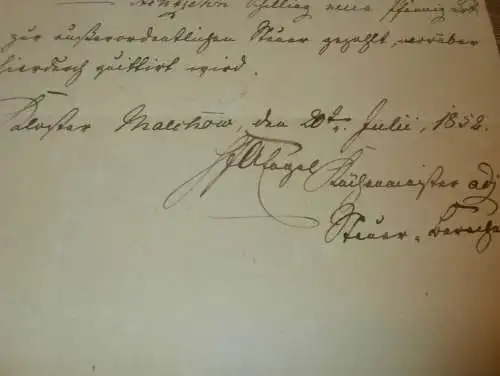 Schilling neun Pfennig
zur außerordentlichen Steuer gezahlt, worüber
hierdurch quittirt wird.
Kloster Malchow, den 20t. Julii, 1852.
Engel Küchenmeister adj
Steuer-Berechn